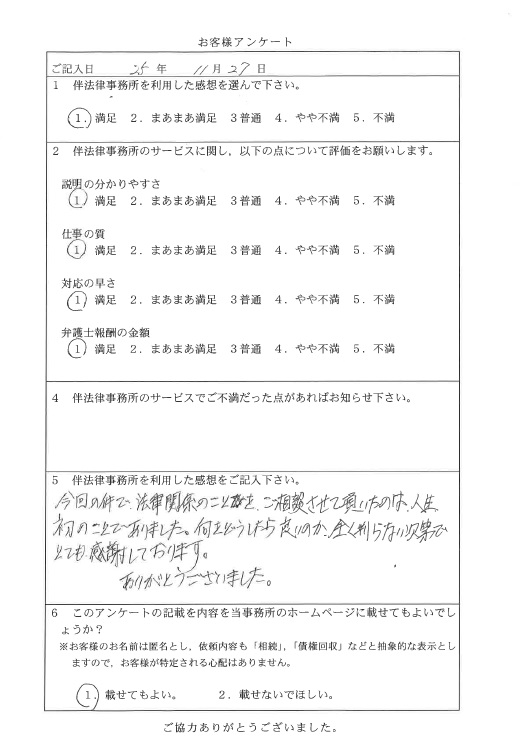 お客様アンケート
ご記入日 25 年 11 月 27 日
1 伴法律事務所を利用した感想を選んで下さい。
1. 満足 2．まあまあ満足 3普通 4．やや不満 5．不満
2 伴法律事務所のサービスに関し，以下の点について評価をお願いします。
説明の分かりやすさ
1 満足 2．まあまあ満足 3普通 4．やや不満 5．不満
仕事の質
1 満足 2．まあまあ満足 3普通 4．やや不満 5．不満
対応の早さ
1 満足 2．まあまあ満足 3普通 4．やや不満 5．不満
弁護士報酬の金額
1 満足 2．まあまあ満足 3普通 4．やや不満 5．不満
4 伴法律事務所のサービスでご不満だった点があればお知らせ下さい。
5 伴法律事務所を利用した感想をご記入下さい。
今回の件で、法律関係のことを、ご相談させて頂いたのは、人生
初のことでありました。何をどうしたら良いのか、全く判らない次第で
とても感謝しております。
ありがとうございました。
6 このアンケートの記載を内容を当事務所のホームページに載せてもよいでし
ょうか？
※お客様のお名前は匿名とし，依頼内容も「相続」，「債権回収」などと抽象的な表示とし
ますので，お客様が特定される心配はありません。
1. 載せてもよい。 2．載せないでほしい。
ご協力ありがとうございました。